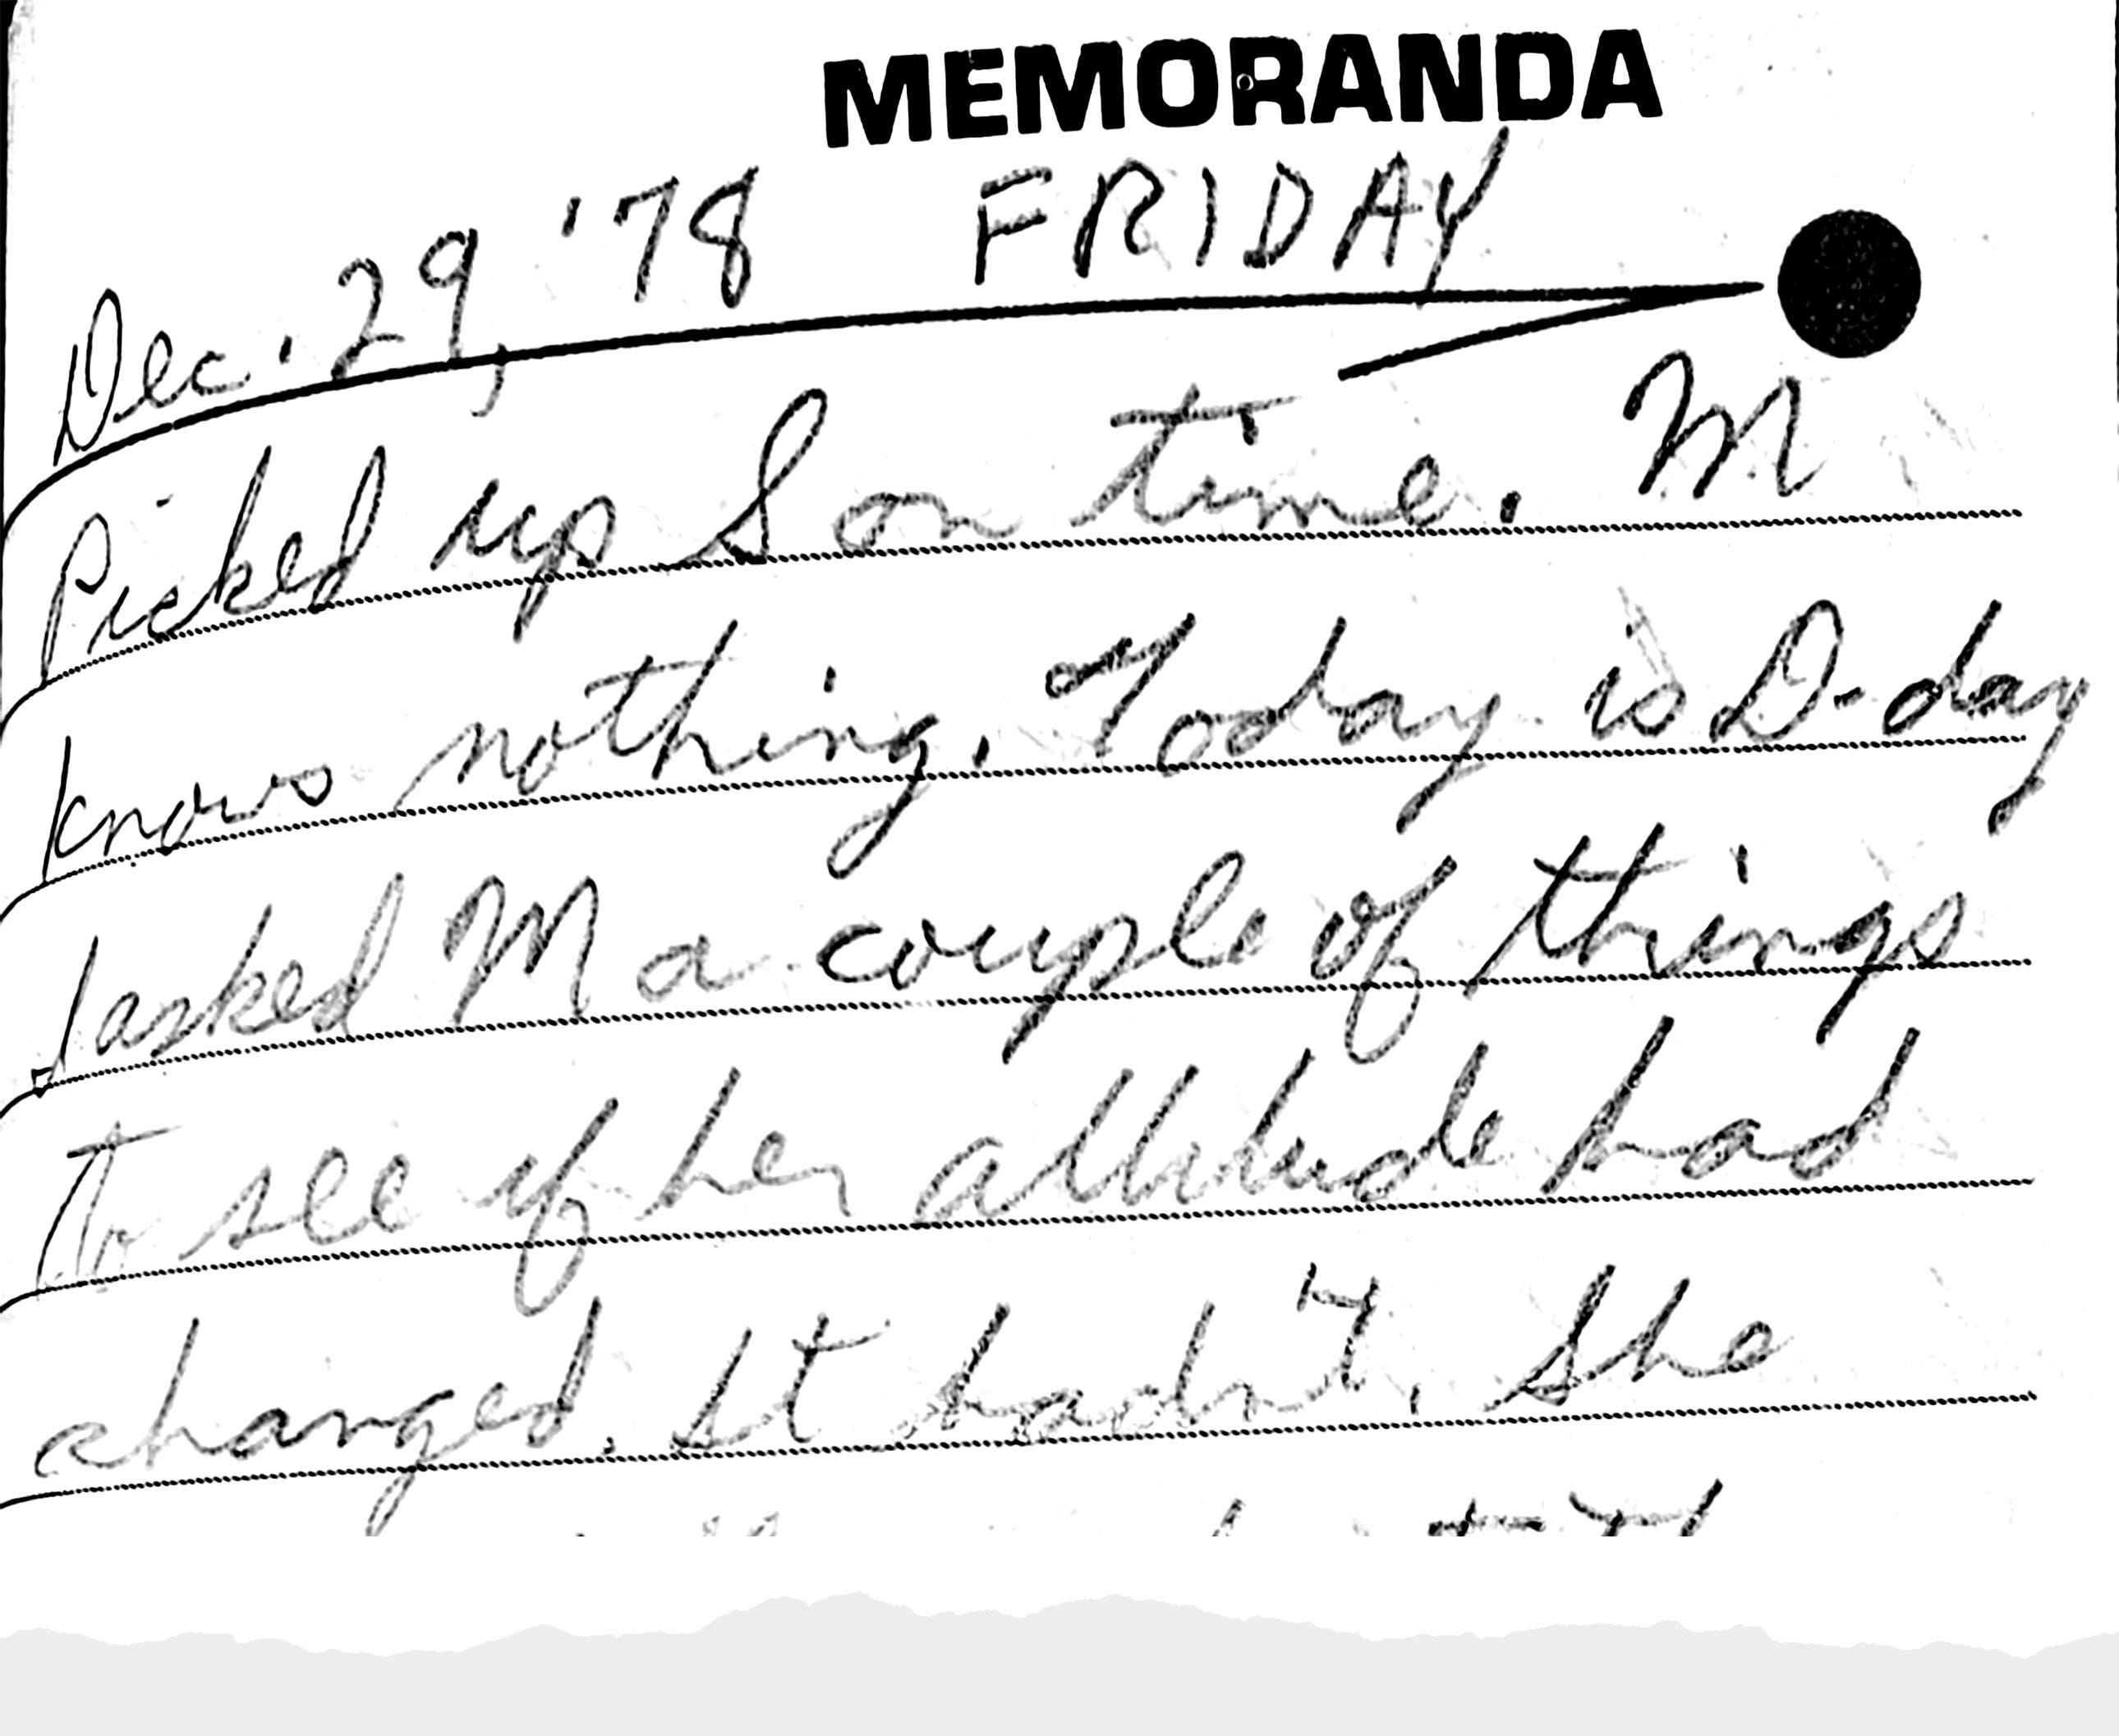 MEMORANDA
Dec. 29, '78 FRIDAY
Picked up S on time. M
knows nothing. Today is D-day
I asked M a couple of things
to see if her attitude had
changed. It hadn't. She